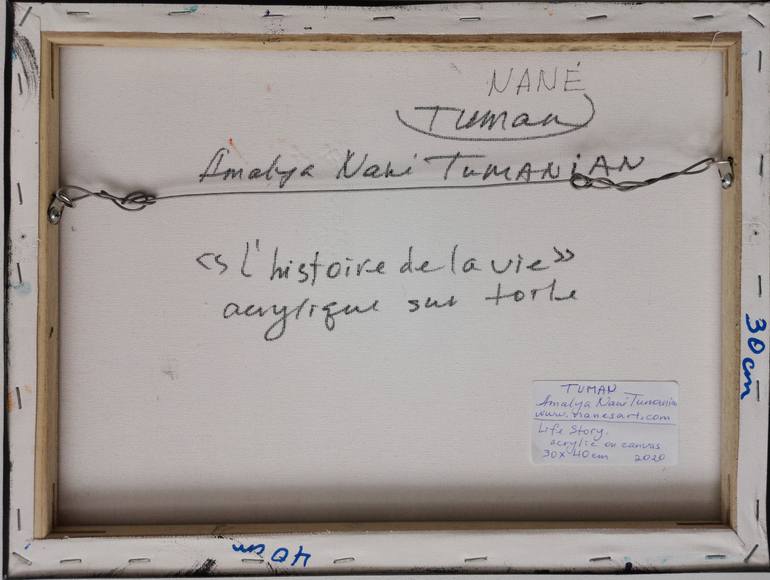 NANÉ
Tuman
Amalya Nané TUMANiAN
«L'histoire de la vie»
acrylique sur toile
30 cm
TUMAN
Amalya Nané Tumanian
www.nanesart.com
Life Story.
acrylic on canvas
30x40cm 2020
40 cm